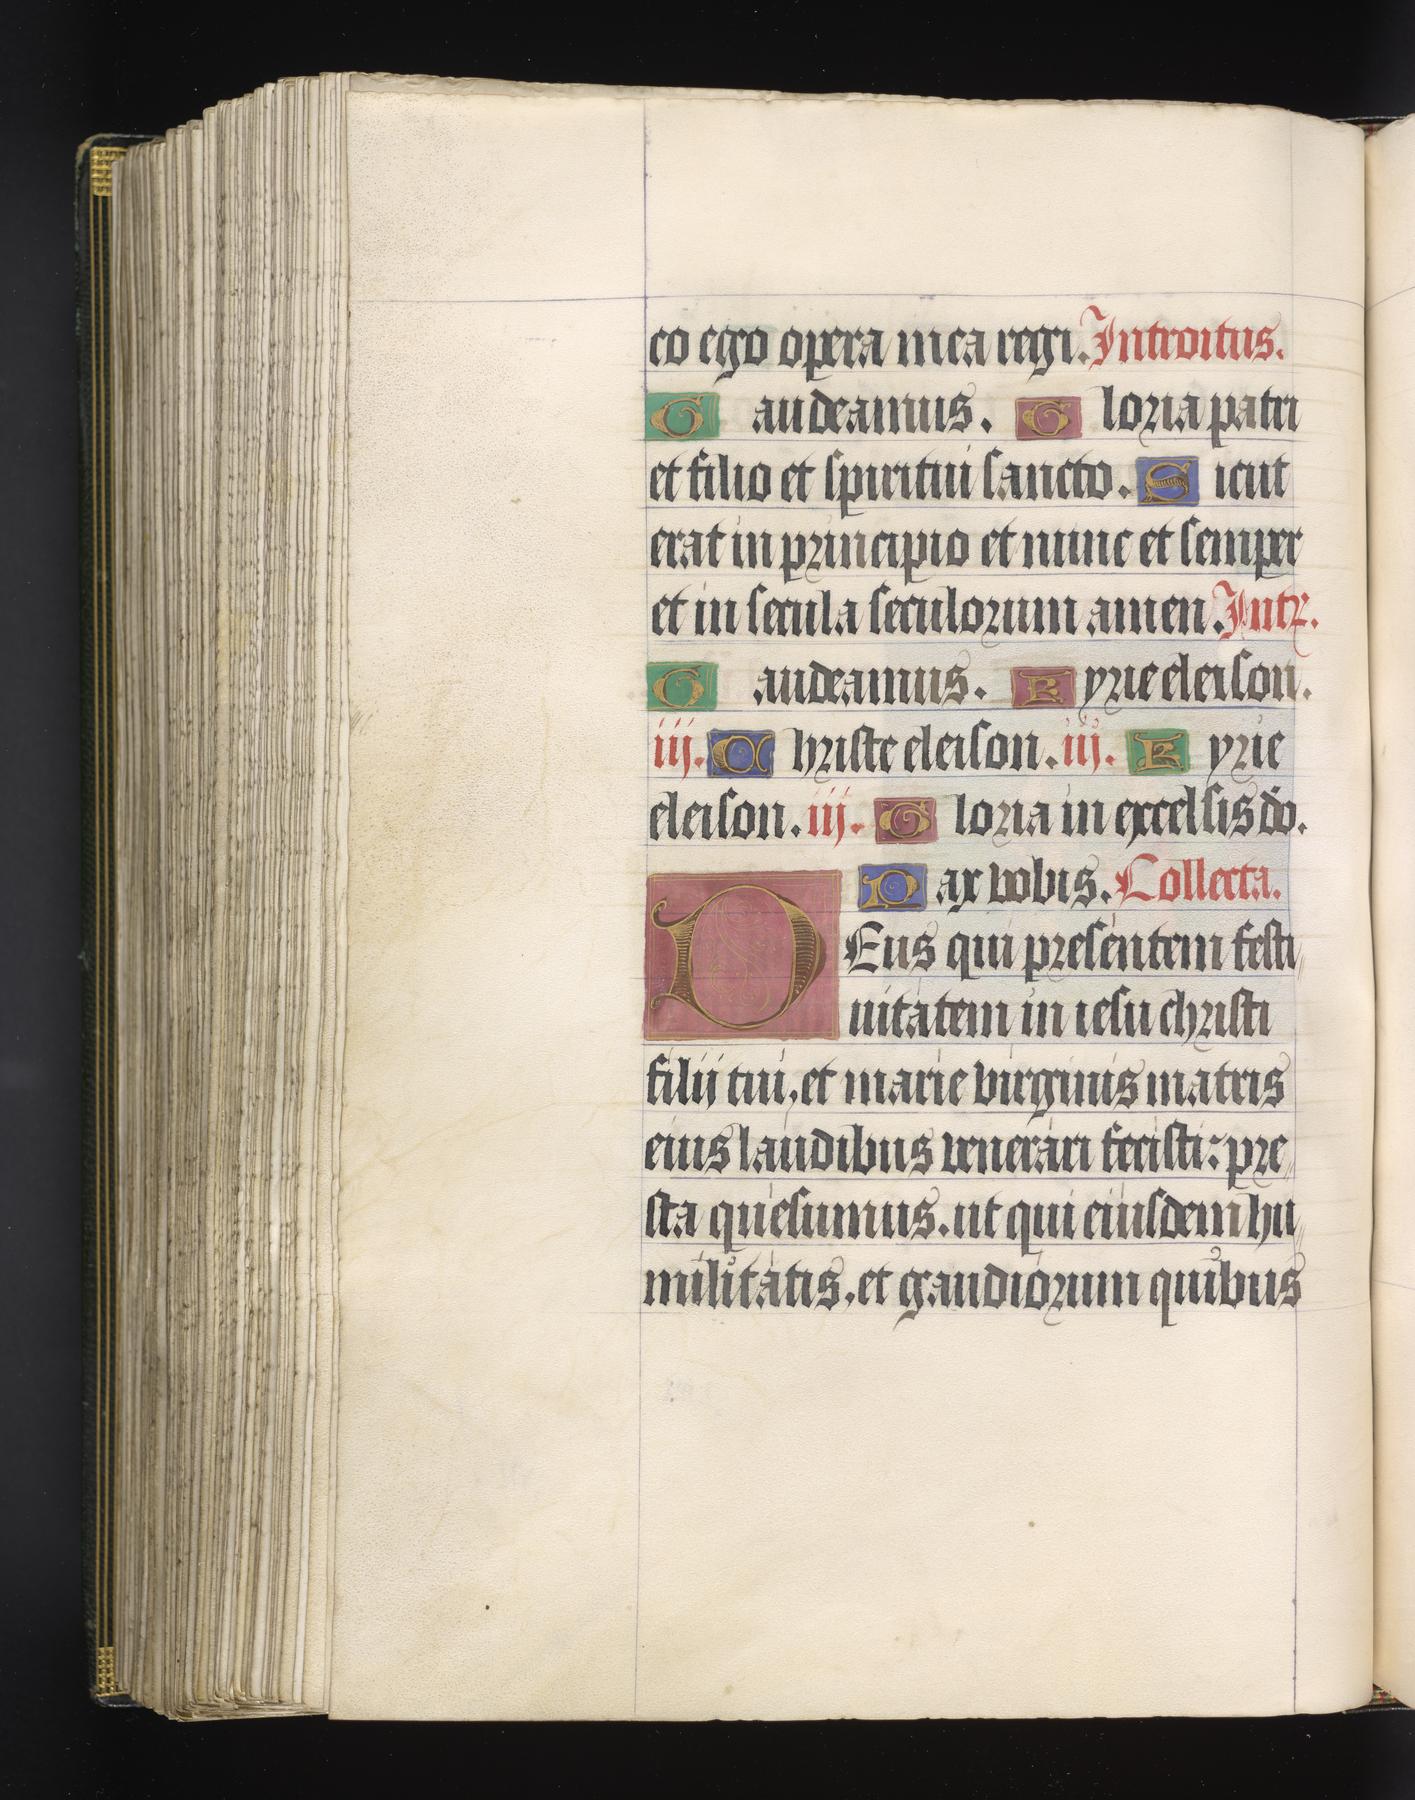 co ego opera mea regi. Introitus.
Gaudeamus. Gloria patri
et filio et spiritui sancto. Sicut
erat in principio et nunc et semper
et in secula seculorum amen. Intr.
Gaudeamus. Kyrie eleison.
iij. Christe eleison. iij. Kyrie
eleison. iij. Gloria in excelsis do.
Pax vobis. Collecta.
DEus qui presentem festi
uitatem in iesu christi
filij tui, et marie virginis matris
eius laudibus venerari fecisti: pre
sta quesumus. ut qui eiusdem hu
militatis, et gaudiorum quibus